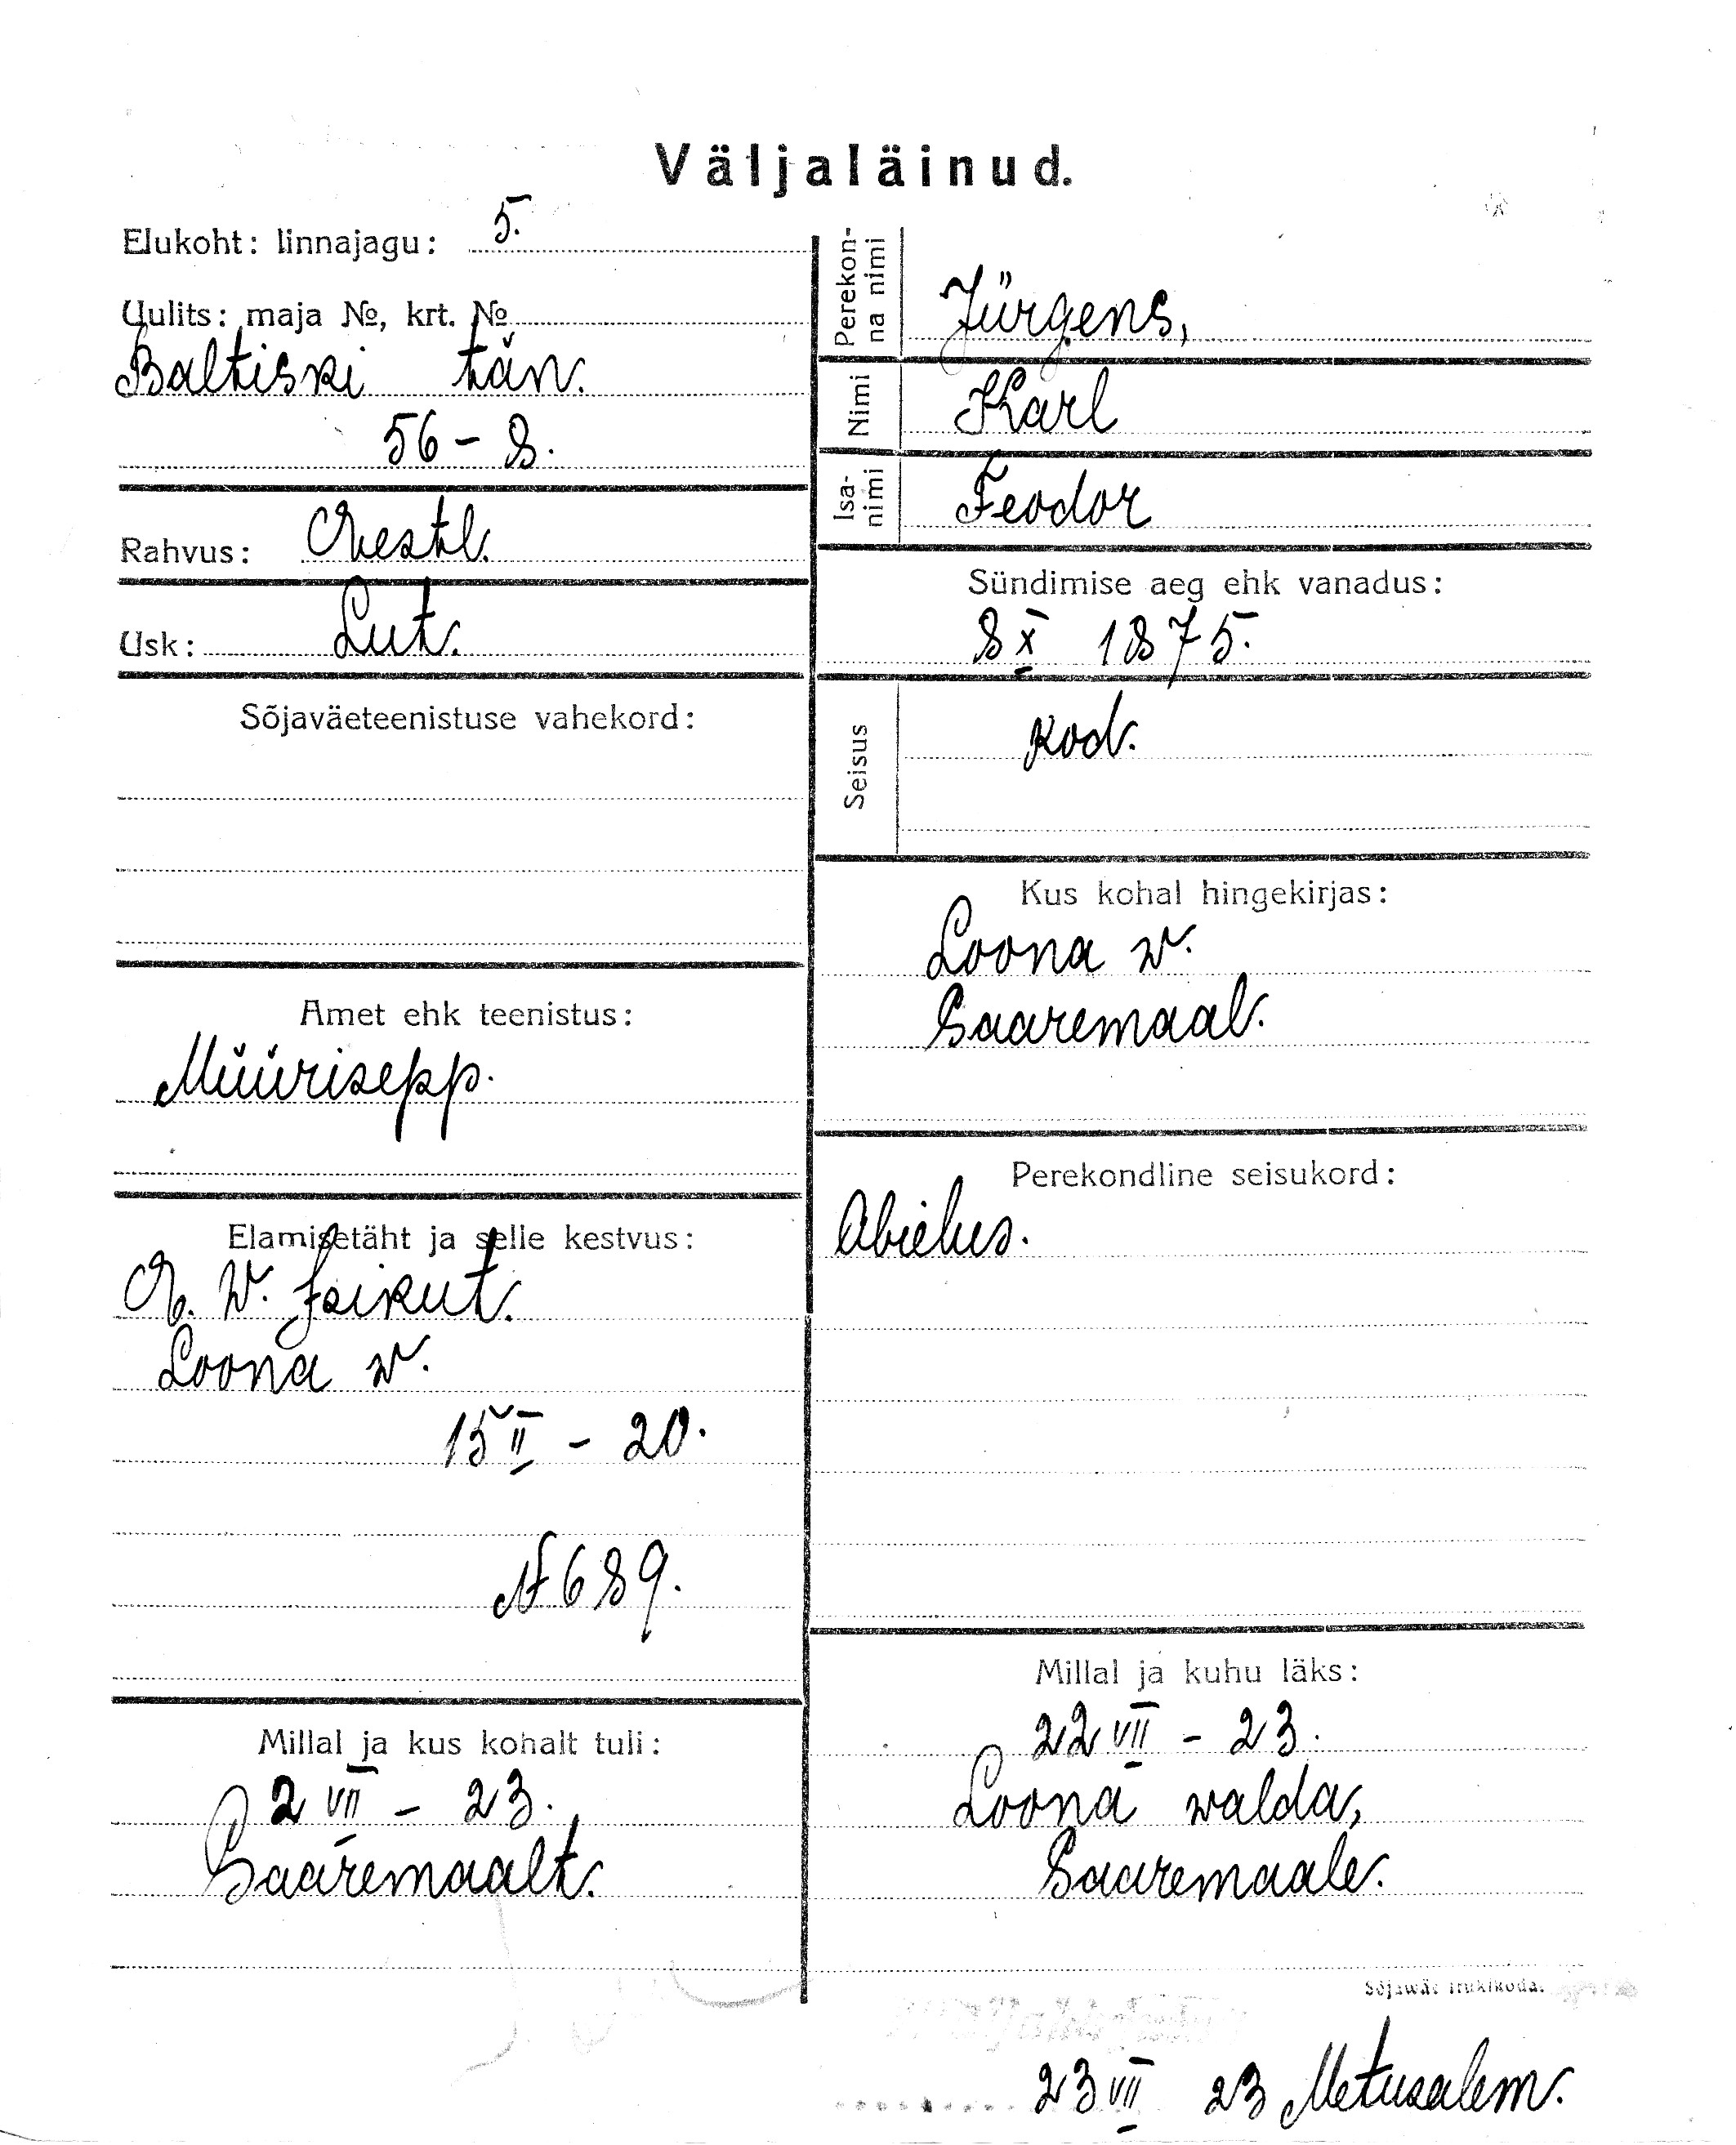 Väljaläinud.
Elukoht: linnajagu: 5.
Uulits: maja №, krt. №
Baltiski tän.
56 – 8.
Rahvus: Eestl.
Usk: Lut.
Sõjaväeteenistuse vahekord:
Amet ehk teenistus:
Müürisepp.
Elamisetäht ja selle kestvus:
E. W. Isikut.
Loona w.
15 II – 20.
N 689.
Millal ja kus kohalt tuli:
2 VII – 23.
Saaremaalt.
Perekon-
na nimi
Jürgens,
Nimi Karl
Isa-
nimi
Feodor
Sündimise aeg ehk vanadus:
8 X 1875.
Seisus kod.
Kus kohal hingekirjas:
Loona w.
Saaremaal.
Perekondline seisukord:
Abielus.
Millal ja kuhu läks:
22 VII – 23.
Loona walda,
Saaremaale.
Sõjawäe trükikoda.
23 VII 23 Metusalem.